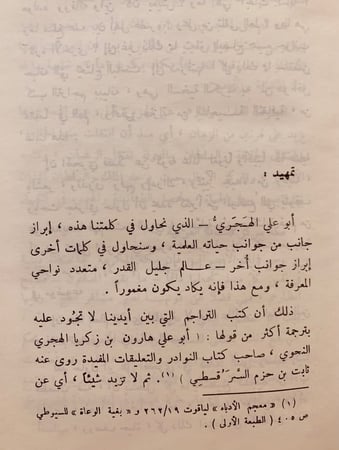 تمهيد :
أبو علي الهَجَريُّ — الذي نحاول في كلمتنا هذه ، إبراز
جانب من جوانب حياته العلمية ، وسنحاول في كلمات أخرى
إبراز جوانب أُخَر — عالم جليل القدر ، متعدد نواحي
المعرفة ، ومع هذا فإنه يكاد يكون مغموراً .
ذلك أن كتب التراجم التي بين أيدينا لا تجُود عليه
بترجمة أكثر من قولها : ( أبو علي هارون بن زكريا الهجري
النحوي ، صاحب كتاب النوادر والتعليقات المفيدة روى عنه
ثابت بن حزم السَّرَقسطي ) (١). ثم لا تزيد شيئاً ، أي عن
(١) « معجم الأدباء » لياقوت ٢٦٢/١٩ و « بغية الوعاة » للسيوطي
ص ٤٠٥ ( الطبعة الأولى ) .